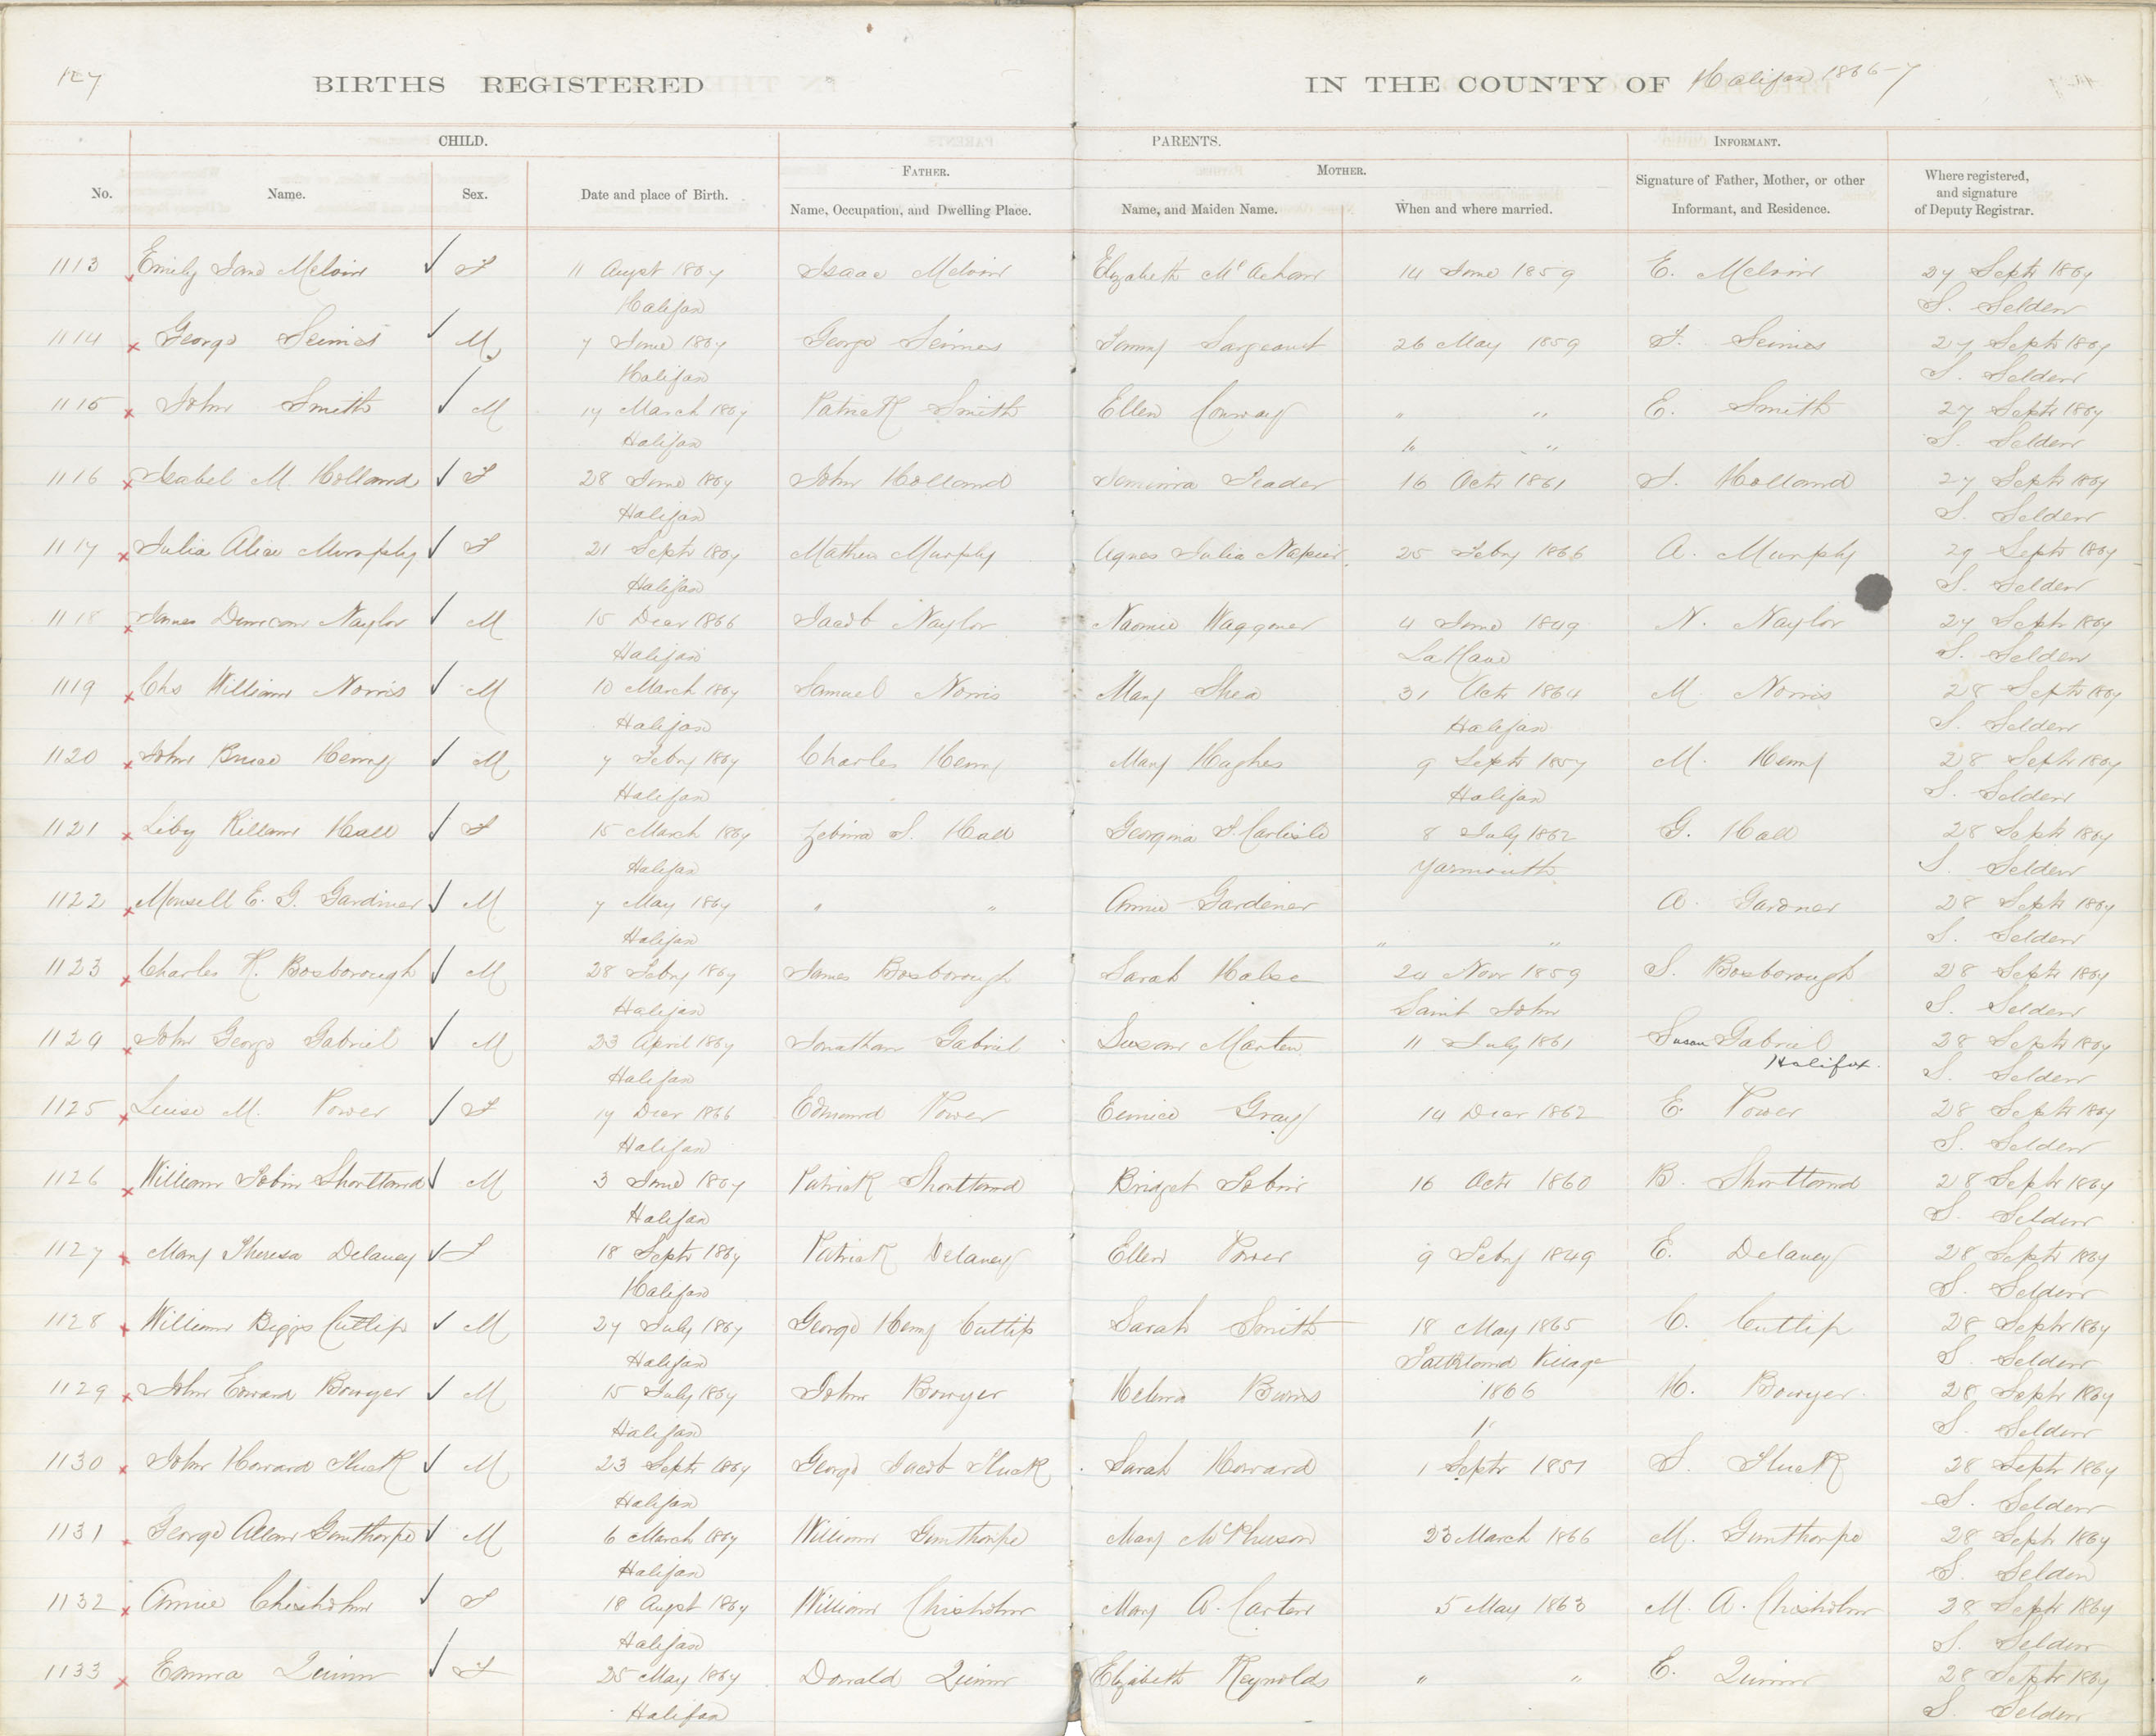 127
BIRTHS REGISTERED IN THE COUNTY OF Halifax 1866-7
CHILD. PARENTS. INFORMANT.
FATHER. MOTHER.
No. Name. Sex. Date and place of Birth. Name, Occupation, and Dwelling Place. Name, and Maiden Name. When and where married. Signature of Father, Mother, or other Informant, and Residence. Where registered, and signature of Deputy Registrar.
1113 Emily Jane Melvin F 11 Augst 1867 Isaac Melvin Elizabeth 14 June 1859 E. Melvin 27 Septr 1867
Halifax S. Selden
1114 George M 7 June 1867 George Sargeant 26 May 1859 27 Septr 1867
Halifax S. Selden
1115 John Smith M 17 March 1867 Patrick Smith Ellen Conway " " E. Smith 27 Septr 1867
Halifax " " S. Selden
1116 Isabel M. Holland F 28 June 1867 John Holland Jemima Leader 16 Octr 1861 J. Holland 27 Septr 1867
Halifax S. Selden
1117 Julia Alice Murphy F 21 Septr 1867 Mathew Murphy Agnes Julia Napier 25 Feby 1866 A. Murphy 29 Septr 1867
Halifax S. Selden
1118 James Duncan Naylor M 15 Decr 1866 Jacob Naylor Naomie Waggoner 4 June 1849 N. Naylor 27 Septr 1867
Halifax LaHave S. Selden
1119 Chs William Norris M 10 March 1867 Samuel Norris Mary Shea 31 Octr 1864 M Norris 28 Septr 1867
Halifax Halifax S. Selden
1120 John Bruce Henry M 7 Feby 1867 Charles Henry Mary Hughes 9 Septr 1857 M. Henry 28 Septr 1867
Halifax Halifax S. Selden
1121 Liby Killam Hall F 15 March 1867 Zebina S. Hall Georgina F. Carlisle 8 July 1862 G. Hall 28 Septr 1867
Halifax Yarmouth S. Selden
1122 Monsell E. G. Gardiner M 7 May 1867 " " Annie Gardener A. Gardner 28 Septr 1867
Halifax " " S. Selden
1123 Charles R. Boxborough M 28 Feby 1867 James Boxborough Sarah Halse 24 Novr 1859 S. Boxborough 28 Septr 1867
Halifax Saint John S. Selden
1124 John George Gabriel M 23 April 1867 Jonathan Gabriel Susan Marten 11 July 1861 Susan Gabriel 28 Septr 1867
Halifax Halifax. S. Selden
1125 Louise M. Power F 17 Decr 1866 Edmond Power Eunice Gray 14 Decr 1862 E. Power 28 Septr 1867
Halifax S. Selden
1126 William Tobin Shortland M 3 June 1867 Patrick Shortland Bridget Tobin 16 Octr 1860 B. Shortland 28 Septr 1867
Halifax S. Selden
1127 Mary Theresa Delaney F 18 Septr 1867 Patrick Delaney Ellen Power 9 Feby 1849 E. Delaney 28 Septr 1867
Halifax S. Selden
1128 William Biggs Cutlip M 27 July 1867 George Henry Cutlip Sarah Smith 18 May 1865 C. Cutlip 28 Septr 1867
Halifax Falkland Village S. Selden
1129 John Edward Bowyer M 15 July 1867 John Bowyer Helena Burns 1866 H. Bowyer 28 Septr 1867
Halifax " S. Selden
1130 John Howard Fluck M 23 Septr 1867 George Jacob Fluck Sarah Howard 1 Septr 1857 S. Fluck 28 Septr 1867
Halifax S. Selden
1131 George Allan Gunthorpe M 6 March 1867 William Gunthorpe Mary McPherson 23 March 1866 M. Gunthorpe 28 Septr 1867
Halifax S. Selden
1132 Annie Chisholm F 18 Augst 1867 William Chisholm Mary A. Carten 5 May 1863 M. A. Chisholm 28 Septr 1867
Halifax S. Selden
1133 Emma Quinn F 25 May 1867 Donald Quinn Elizabeth Reynolds " " E. Quinn 28 Septr 1867
Halifax S. Selden